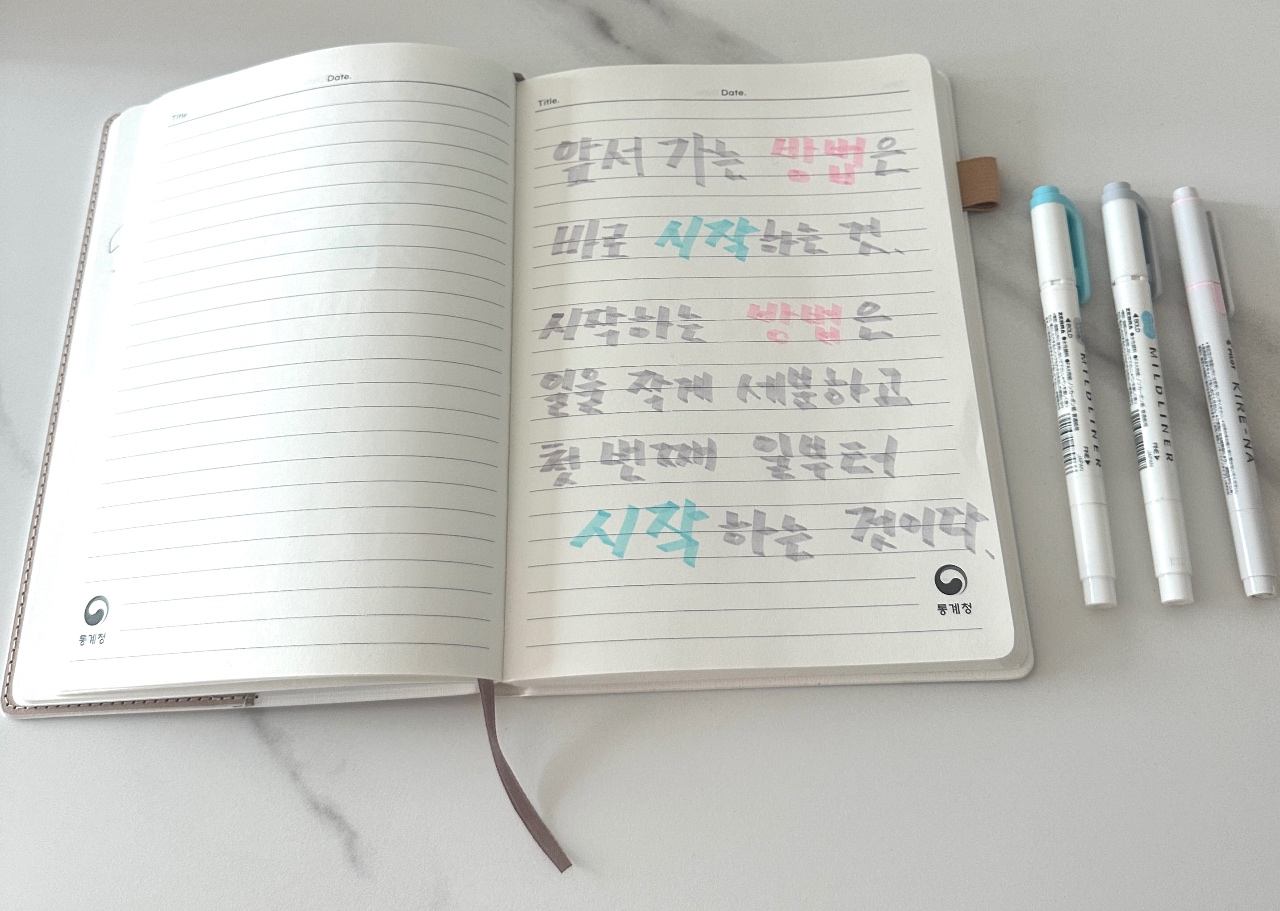 Title. Date.
통계청
Title. Date.
앞서 가는 방법은
바로 시작하는 것.
시작하는 방법은
일을 작게 세분하고
첫 번째 일부터
시작하는 것이다.
통계청
BOLD ZEBRA MILDLINER FINE JAPAN
BOLD ZEBRA MILDLINER FINE JAPAN
PILOT KIRE-NA